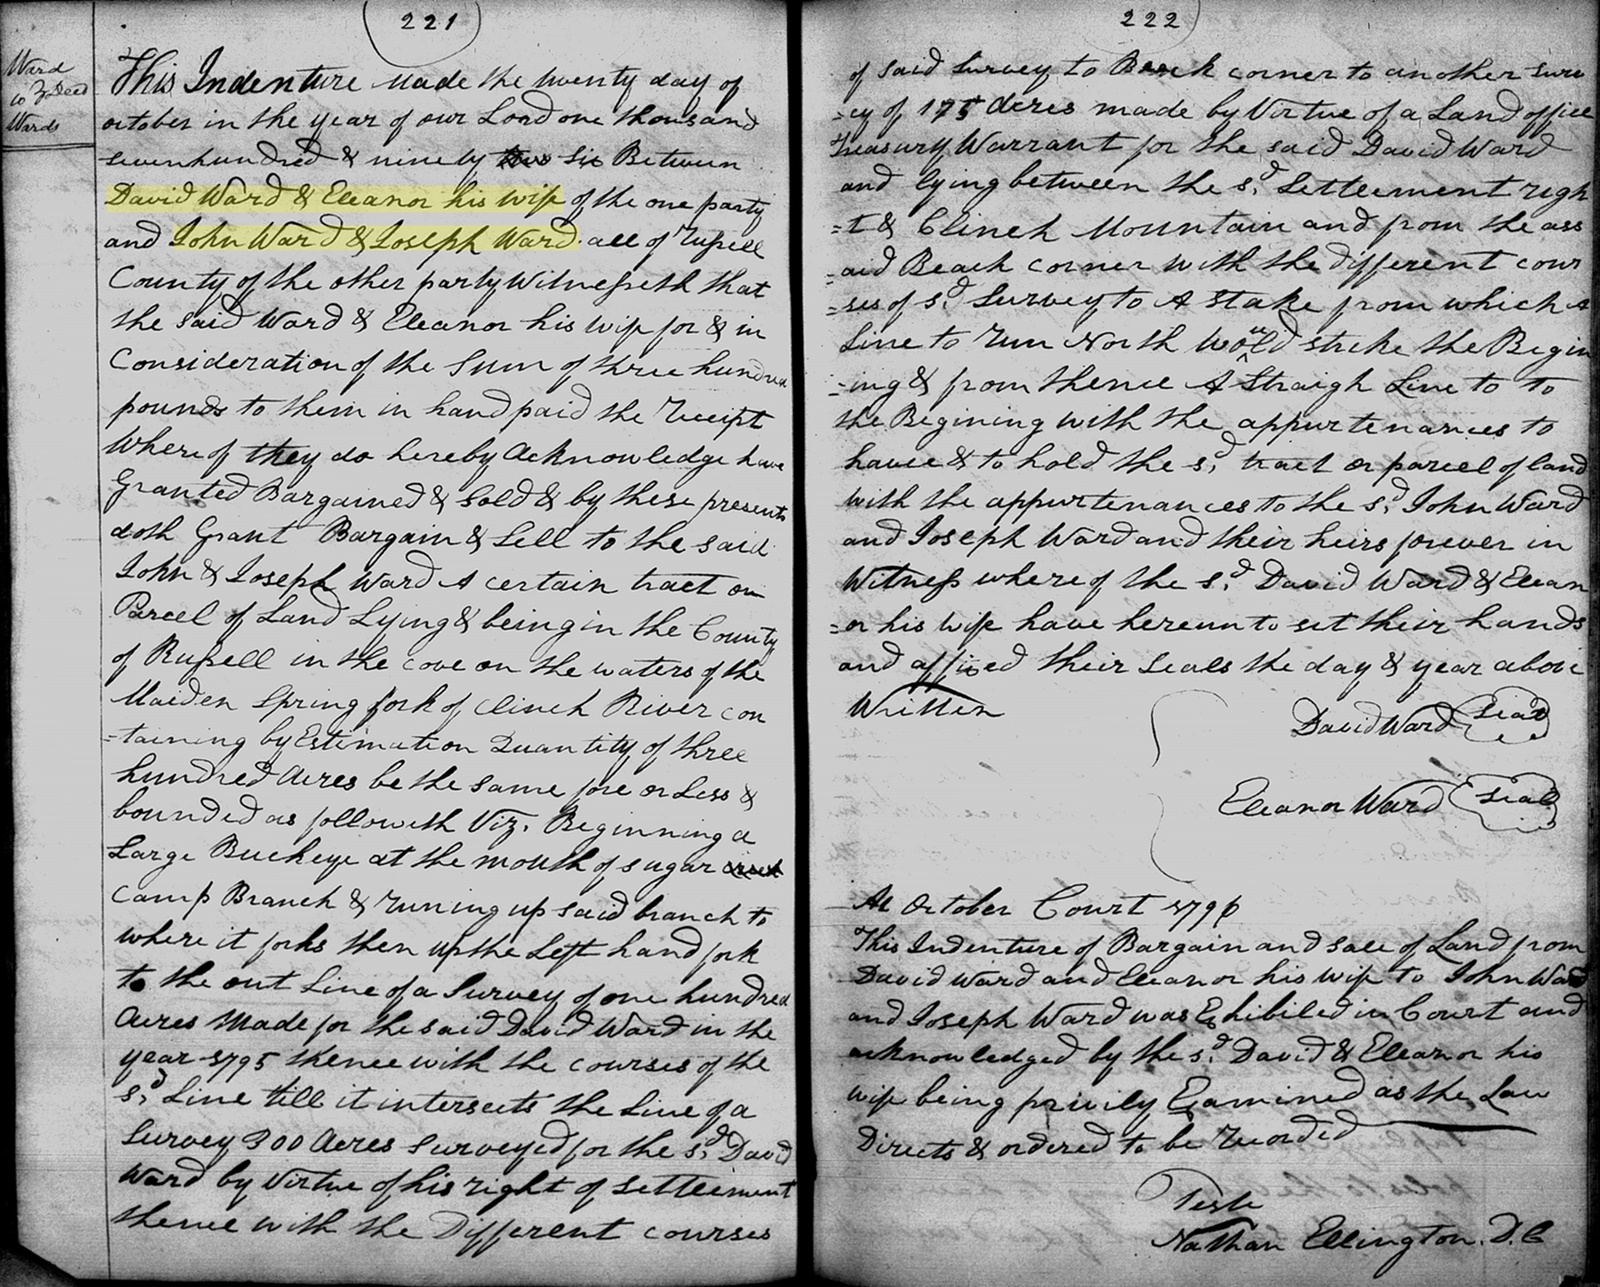 221
Ward
to } Deed
Wards
This Indenture made the twenty day of
october in the year of our Lord one thousand
sevenhundred & ninety two six Between
David Ward & Eleanor his wife of the one party
and John Ward & Joseph Ward all of Russell
County of the other party Witnesseth that
the said Ward & Eleanor his wife for & in
Consideration of the Sum of three hundred
pounds to them in hand paid the Receipt
Where of they do hereby Acknowledge have
Granted Bargained & Sold & by these presents
doth Grant Bargain & Sell to the said
John & Joseph Ward A certain tract or
Parcel of Land Lying & being in the County
of Russell in the cove on the waters of the
Maiden Spring fork of Clinch River con
=taining by Estimation Quantity of three
hundred Acres be the same fore or Less &
bounded as followeth Viz. Beginning a
Large Buckeye at the mouth of sugar
Camp Branch & runing up said branch to
where it forks then up the Left hand fork
to the out Line of a Survey of one hundred
Acres Made for the said David Ward in the
year 1795 thence with the courses of the
sd. Line till it intersects the Line of a
Survey 300 Acres surveyed for the sd. David
Ward by Virtue of his right of settlement
thence with the Different courses
222
of said survey to Beach corner to another surv
=ey of 175 Acres made by Virtue of a Land office
Treasury Warrant for the said David Ward
and lying between the sd. Settlement righ
=t & Clinch Mountain and from the ass
=aid Beach corner with the different cour
=ses of sd. Survey to A Stake from which A
Line to run North would strike the Begin
=ing & from thence A Straigh Line to to
the Begining with the appurtenances to
have & to hold the sd. tract or parcel of land
with the appurtenances to the sd. John Ward
and Joseph Ward and their heirs forever in
Witness where of the sd. David Ward & Elean
=or his wife have hereunto set their hands
and affixed their Seals the day & year above
Written
David Ward Seal
Eleanor Ward Seal
At October Court 1796
This Indenture of Bargain and sale of Land from
David Ward and Eleanor his wife to John Ward
and Joseph Ward was Exhibited in Court and
acknowledged by the sd. David & Eleanor his
wife being privily Examined as the Law
Directs & ordered to be recorded
Teste
Nathan Ellington. D.C